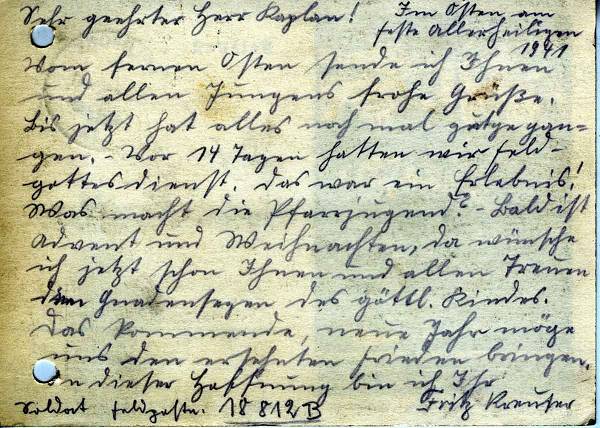 Sehr geehrter Herr Kaplan! Im Osten, am
Feste Allerheiligen
1941
Vom fernen Osten sende ich Ihnen
und allen Jungens frohe Grüße.
Bis jetzt hat alles noch mal gutgegan-
gen. - Vor 14 Tagen hatten wir Feld-
gottesdienst. Das war ein Erlebnis!
Was macht die Pfarrjugend? - Bald ist
Advent und Weihnachten, da wünsche
ich jetzt schon Ihnen und allen Treuen
den Gnadensegen des göttl. Kindes.
Das kommende, neue Jahr möge
uns den ersehnten Frieden bringen.
In dieser Hoffnung bin ich Ihr
Soldat Feldpostn. 18 812 B Fritz Kreuser